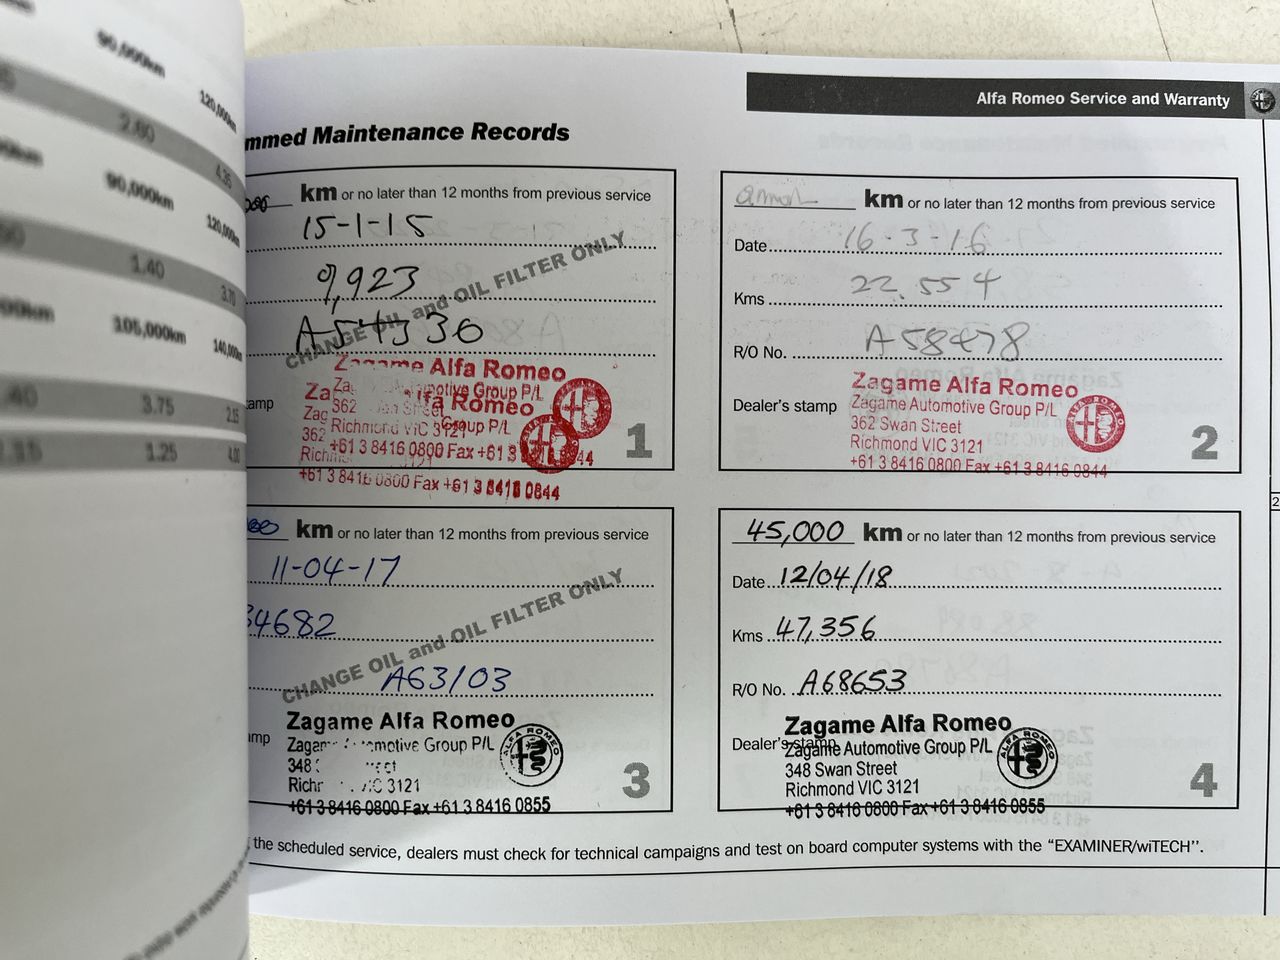 90,000km
120,000km
2.60
4.35
90,000km
120,000km
1.40
3.70
105,000km
140,000km
.40
3.75
2.15
1.25
4.00
Alfa Romeo Service and Warranty
mmed Maintenance Records
km or no later than 12 months from previous service
15-1-15
9,923
A54336
CHANGE OIL and OIL FILTER ONLY
amp
Zagame Alfa Romeo
Richmond VIC 3121
+61 3 8416 0800 Fax +61 3 8416 0844
1
km or no later than 12 months from previous service
Date 16-3-16
Kms 22.554
R/O No. A58478
Dealer's stamp
Zagame Alfa Romeo
Zagame Automotive Group P/L
362 Swan Street
Richmond VIC 3121
+61 3 8416 0800 Fax +61 3 8416 0844
2
km or no later than 12 months from previous service
11-04-17
34682
A63103
CHANGE OIL and OIL FILTER ONLY
mp
Zagame Alfa Romeo
Group P/L
348
3121
+61 3 8416 0800 Fax +61 3 8416 0855
3
45,000 km or no later than 12 months from previous service
Date 12/04/18
Kms 47,356
R/O No. A68653
Dealer's stamp
Zagame Alfa Romeo
Zagame Automotive Group P/L
348 Swan Street
Richmond VIC 3121
+61 3 8416 0800 Fax +61 3 8416 0855
4
the scheduled service, dealers must check for technical campaigns and test on board computer systems with the "EXAMINER/wiTECH".